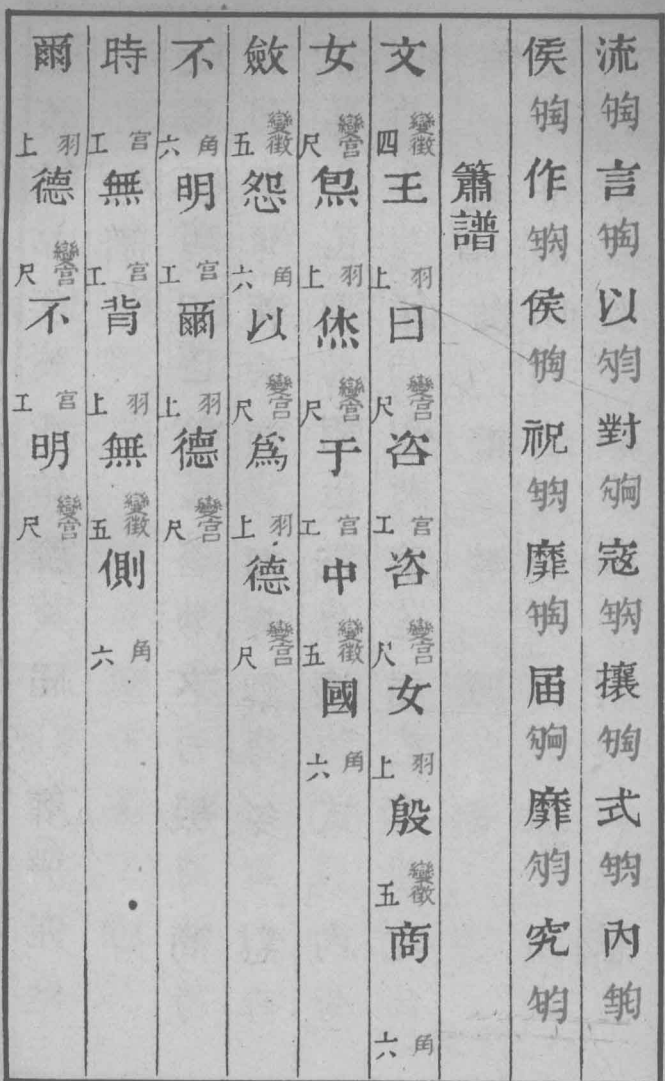 流言以對寇攘式内
侯作侯祝靡届靡究
簫譜
文變徵四王羽上曰變宫尺咨宫工咨變宫尺女羽上殷變徵五商角六
女變宫尺炰羽上烋變宫尺于宫工中變徵五國角六
斂變徵五怨角六以變宫尺爲羽上德變宫尺
不角六明宫工爾羽上德變宫尺
時宫工無宫工背羽上無變徵五側角六
爾羽上德變宫尺不宫工明變宫尺